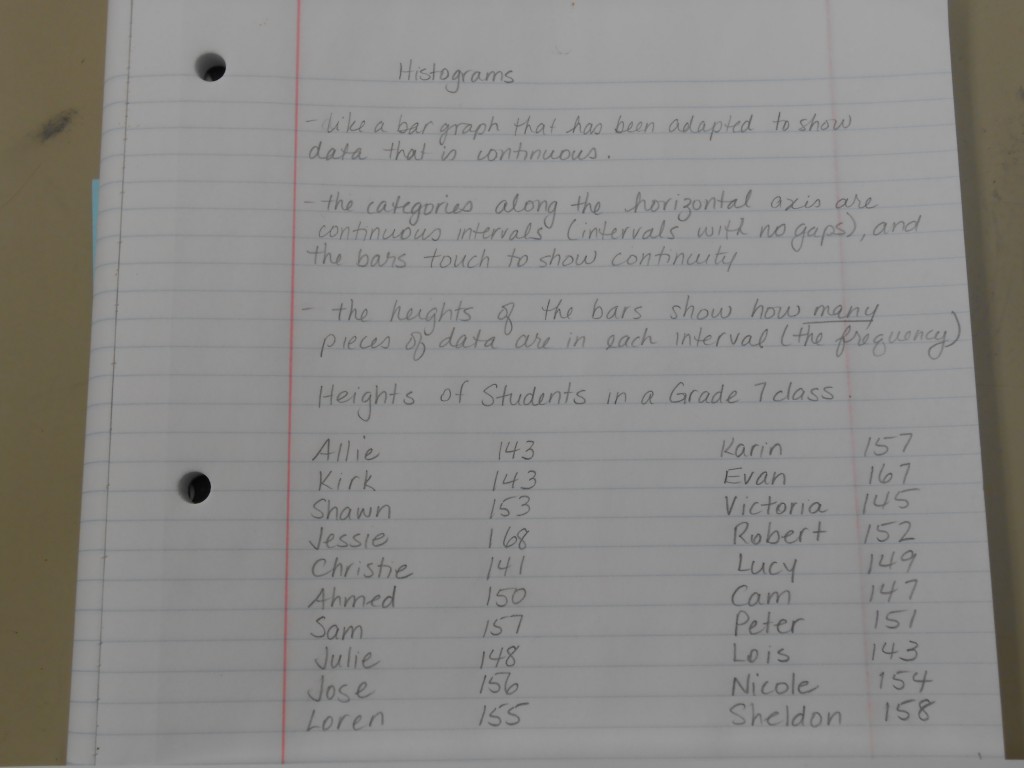 Histograms
- like a bar graph that has been adapted to show
data that is continuous.
- the categories along the horizontal axis are
continuous intervals (intervals with no gaps), and
the bars touch to show continuity
- the heights of the bars show how many
pieces of data are in each interval (the frequency)
Heights of Students in a Grade 7 class.
Allie 143 Karin 157
Kirk 143 Evan 167
Shawn 153 Victoria 145
Jessie 168 Robert 152
Christie 141 Lucy 149
Ahmed 150 Cam 147
Sam 157 Peter 151
Julie 148 Lois 143
Jose 156 Nicole 154
Loren 155 Sheldon 158